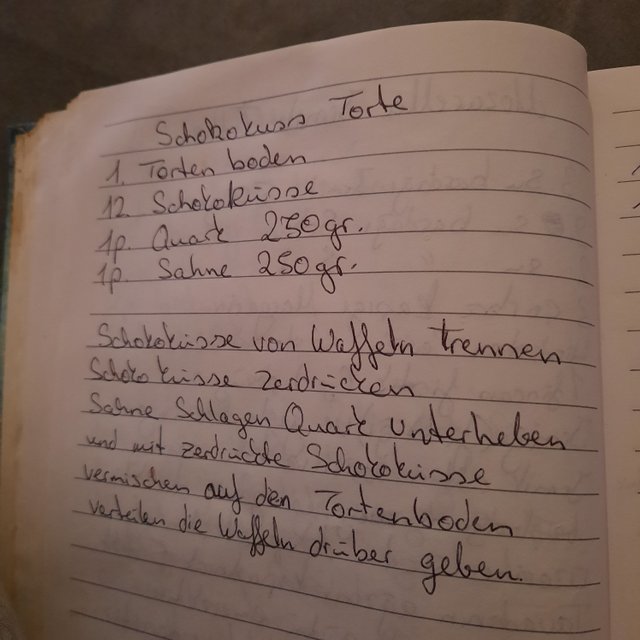 Schokokuss Torte
1. Torten boden
12 Schokoküsse
1p. Quark 250gr.
1p. Sahne 250gr.
Schokoküsse von Waffeln trennen
Schoko küsse zerdrücken
Sahne Schlagen Quark unterheben
und mit zerdrückte Schokoküsse
vermischen auf den Tortenboden
verteilen die Waffeln drüber geben.